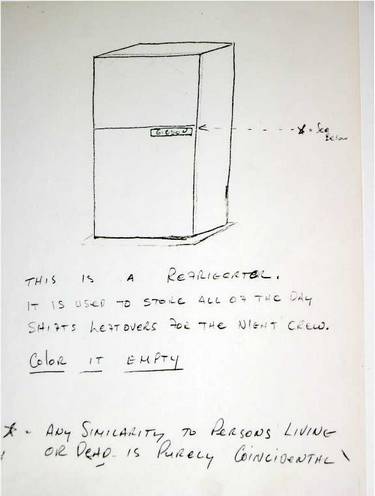 GIBSON
* - See
Below
THIS IS A REFRIGERTER.
IT IS USED TO STORE ALL OF THE DAY
SHIFTS LEFTOVERS FOR THE NIGHT CREW.
COLOR IT EMPTY
* - ANY SIMILARITY TO PERSONS LIVING
OR DEAD IS PURELY COINCIDENTAL